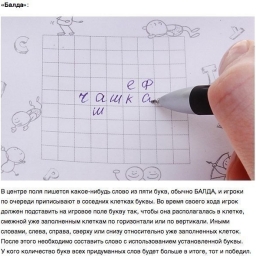 «Балда»:
е ф
чашка
ш
В центре поля пишется какое-нибудь слово из пяти букв, обычно БАЛДА, и игроки
по очереди приписывают в соседних клетках буквы. Во время своего хода игрок
должен подставить на игровое поле букву так, чтобы она располагалась в клетке,
смежной уже заполненным клеткам по горизонтали или по вертикали. Иными
словами, слева, справа, сверху или снизу относительно уже заполненных клеток.
После этого необходимо составить слово с использованием установленной буквы.
У кого количество букв всех придуманных слов будет больше в итоге, тот и победил.